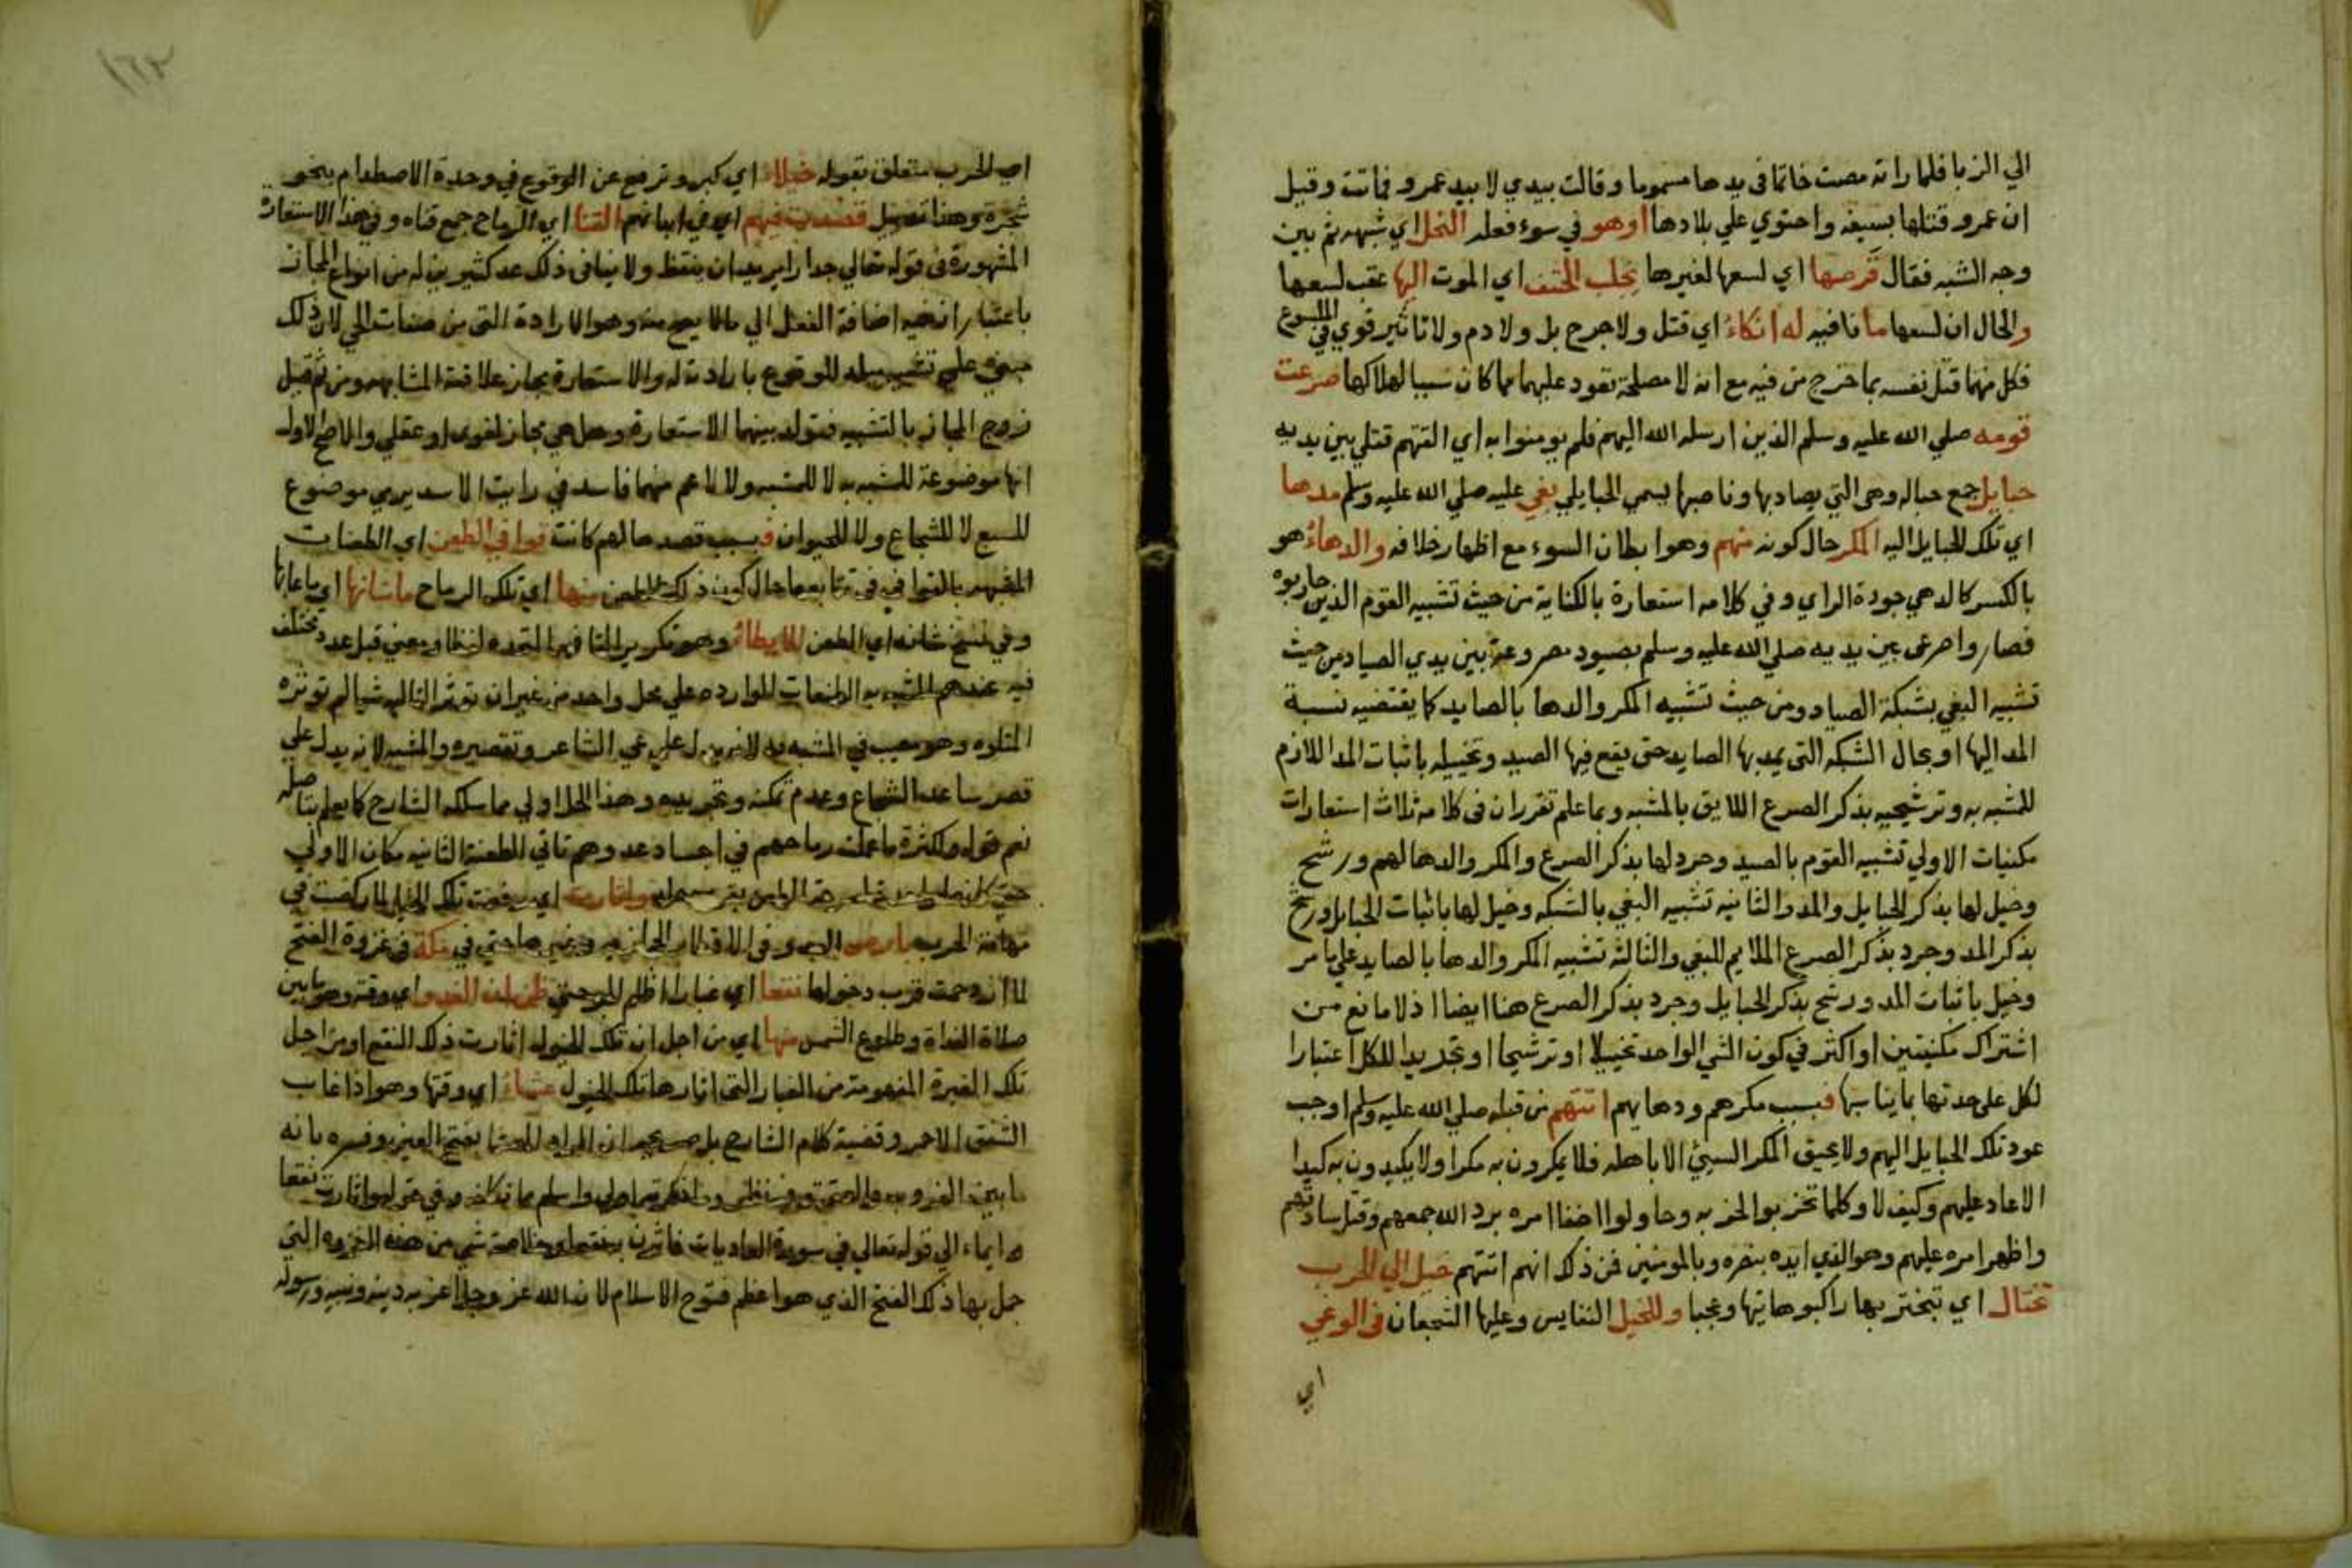 الي الزبا فلما راته مصت خاتما في يدها مسموما وقالت بيدي لا بيد عمرو فماتت وقيل
ان عمرو قتلها بسيفه واحتوي علي بلادها اوهو في سوء فعله النحل اي شبهه ثم بين
وجه الشبه فقال قرصها اي لسعها لغيرها يجلب الحتف اي الموت اليها عقب لسعها
والحال ان لسعها ما نافيه له انكاء اي قتل ولا جرح بل ولا دم ولا تاثير قوي في الملسوع
فكل منهما قتل نفسه بما خرج من فيه مع انه لا مصلحة تعود عليهما مما كان سببا لهلاكها صرعت
قومه صلي الله عليه وسلم الذين ارسله الله اليهم فلم يومنوا به اي القتهم قتلي بين يديه
حبايل جمع حباله وهي التي يصاد بها وناصبها يسمي الحبايلي بغي عليه صلي الله عليه وسلم مدها
اي تلك الحبايل اليه المكر حال كونه منهم وهو ابطان السوء مع اظهار خلافه والدهاء هو
بالكسر كالدهي جودة الراي وفي كلامه استعارة بالكناية من حيث تشبيه القوم الذين حاربوه
فصاروا صرعى بين يديه صلي الله عليه وسلم بصيود مصروعة بين يدي الصياد من حيث
تشبيه البغي بشبكة الصياد ومن حيث تشبيه المكر والدها بالصايد كما يقتضيه نسبة
المد اليها اوبحال الشبكه التي يمد بها الصايد حتى يقع فيها الصيد وتخييله باثبات المد اللازم
للمشبه به وترشيحه بذكر الصرع اللايق بالمشبه وبما علم تقرر ان في كلامه ثلاث استعارات
مكنيات الاولي تشبيه القوم بالصيد وجرد لها بذكر الصرع والمكر والدها لهم ورشح
وخيل لها بذكر الحبايل والمد والثانيه تشبيه البغي بالشبكه وخيل لها باثبات الحبايل ورشح
بذكر المد وجرد بذكر الصرع الملايم للبغي والثالثه تشبيه المكر والدها بالصايد علي ما مر
وخيل باثبات المد ورشح بذكر الحبايل وجرد بذكر الصرع هنا ايضا اذ لا مانع من
اشتراك مكنيتين او اكثر في كون الشي الواحد تخييلا او ترشيحا او تجريدا للكل اعتبارا
لكل على حدتها بما يناسبها فبسبب مكرهم ودهايهم اتتهم من قبله صلي الله عليه وسلم اوجب
عود تلك الحبايل اليهم ولا يحيق المكر السيئ الا باهله فلا يمكرون به مكرا ولا يكيدون به كيدا
الا عاد عليهم وكيف لا وكلما تحزبوا لحزبه وحاولوا اخفا امره برد الله جمعهم وقتل ساداتهم
واظهر امره عليهم وهو الذي ايده بنصره وبالمومنين فمن ذلك انهم اتتهم خيل الي الحرب
تختال اي تتبختر بها راكبوها تيها وعجبا وللخيل النفايس وعليها الشجعان في الوغي
اي
١٦٣
اي الحرب متعلق بقوله خيلاء اي كبر وترفع عن الوقوع في وحدة الاصطدام بنحو
شجرة وهذا تعليل قصدت فيهم اي في ابدانهم القنا اي الرماح جمع قناه وفي هذا الاستعارة
المشهورة في قوله تعالي جدارا يريد ان ينقض ولا ينافي ذلك عد كثيرين له من انواع المجاز
باعتبار ان فيه اضافة الفعل الي ما لا يصح منه وهو الارادة التي من صفات الحي لان ذلك
مبني علي تشبيه ميله للوقوع بارادته له والاستعارة مجاز علاقته المشابهه ومن ثم قيل
زوج المجاز بالتشبيه فتولد بينهما الاستعارة وهل هي مجاز لغوي او عقلي والاصح الاول
انها موضوعة للمشبه به لا للمشبه ولا لاعم منهما فاسد في رايت الاسد يرمي موضوع
للسبع لا للشجاع ولا للحيوان فبسبب قصدها لهم كانت قوافي الطعن اي الطعنات
المشبهه بالقوافي في تتابعها حال كون ذلك الطعن منها اي تلك الرماح ما شانها اي ما عابها
وفي نسخ شانه اي الطعن الايطاء وهو تكرير القافيه المتحده لفظا ومعني قبل عدد مختلف
فيه عندهم المشبه به الطعنات الوارده علي محل واحد من غير ان تؤثر الثانيه شيا لم توثره
المتلوه وهو معيب في المشبه به لانه يدل علي عي الشاعر وتقصيره والمشبه لانه يدل علي
قصر ساعد الشجاع وعدم تمكنه وتجريبه وهذا الحل اولي مما سلكه الشارح كما يعلم بتامله
نعم قوله ولكثرة ما عملت رماحهم في اجساد عدوهم تاتي الطعنة الثانيه مكان الاولي
واثارت اي رفعت تلك الخيل لما ركضت في
الحرب بارض في مكة في غزوة الفتح
لما ازدحمت قرب دخولها نقعا اي غبارا اظلم الجو حتي ظن ان الغدو اي وقته وهو ما بين
صلاة الغداة وطلوع الشمس منها اي من اجل ان تلك الخيول اثارت ذلك النقع او من اجل
تلك الغبرة المفهومة من الغبار التي اثارها تلك الخيول عشاء اي وقتها وهو اذا غاب
الشفق الاحمر وقضية كلام الشارح بل صريحه ان المراد العشا بفتح العين وفسره بانه
ما بين الغروب والعتمة وفيه نظر وفي قوله واثارت نقعا
ايماء الي قوله تعالي في سورة العاديات فاثرن به نقعا وخلاصة شي من هذه الغزوه التي
حصل بها ذلك الفتح الذي هو اعظم فتوح الاسلام لان الله عز وجل اعز به دينه ونبيه ورسوله